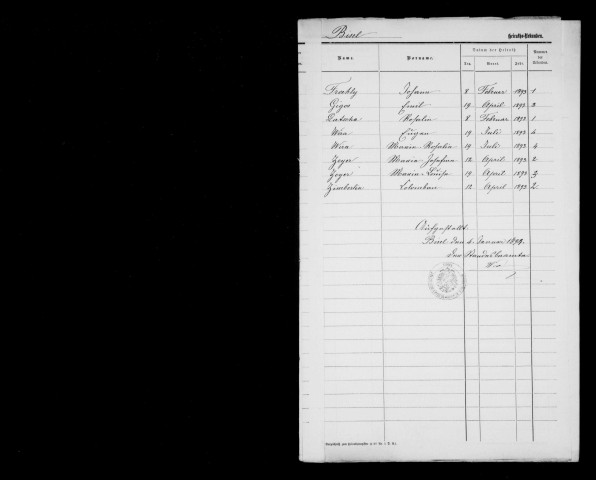 Bisel Heirats-Urkunden.
Name. Vorname. Datum der Heirat Nummer der Urkunden.
Tag. Monat. Jahr.
Frahly Johann 8 Februar 1893 1
Gigos Emil 19 April 1893 3
Latscha Rosalie 8 Februar 1893 1
Wira Eugen 19 Juli 1893 4
Wira Maria Rosalia 19 Juli 1893 4
Zeyer Maria Josefina 12 April 1893 2
Zeyer Maria Louisa 19 April 1893 3
Zimberlin Colomban 12 April 1893 2
Aufgestellt.
Bisel den 4. Januar 1894.
Der Standesbeamte